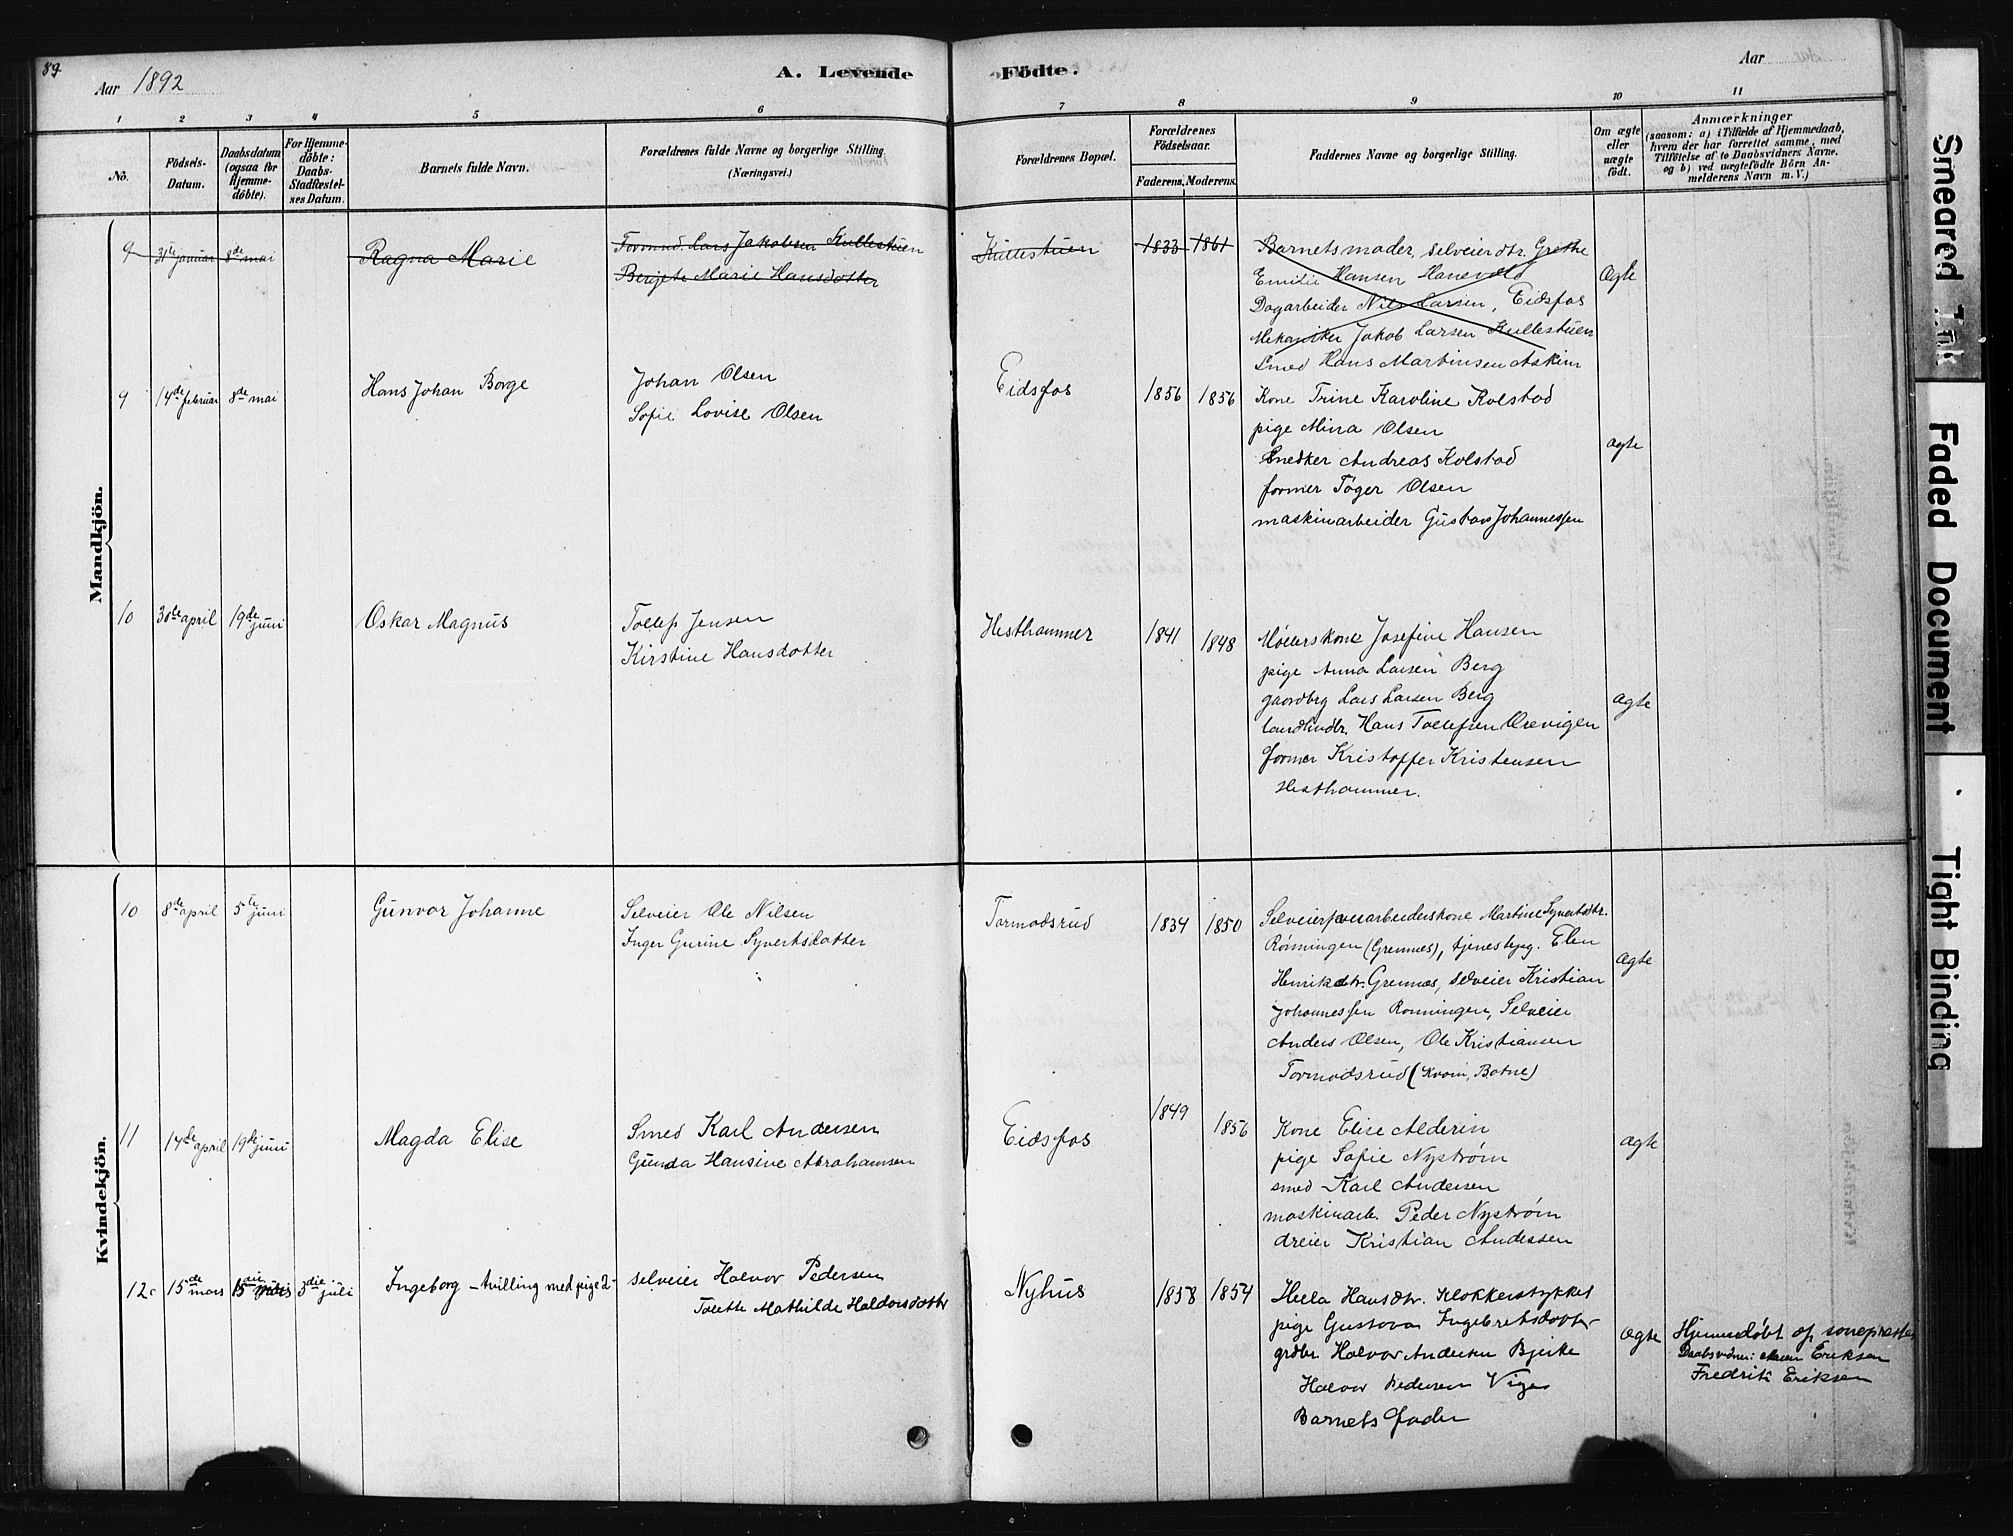 89
Aar 1892
A. Levende
Födte.
Aar
1 2 3 4 5 6 7 8 9 10 11
No.
Födsels-
Datum.
Daabsdatum
(ogsaa for
Hjemme-
döbte).
For Hjemme-
döbte:
Daabs-
Stadfæstel-
ses Datum.
Barnets fulde Navn.
Forældrenes fulde Navne og borgerlige Stilling.
(Næringsvei.)
Forældrenes Bopæl.
Forældrenes
Födselsaar.
Faderens. Moderens.
Faddernes Navne og borgerlige Stilling.
Om ægte
eller
uægte
födt.
Anmærkninger
(saasom: a) i Tilfælde af Hjemmedaab,
hvem der har forrettet samme, med
Tilföielse af to Daabsvidners Navne.
og b) ved uægtefödte Börn An-
melderens Navn m. V.)
Mandkjön.
9 31te januar 8de mai
Ragna Marie
Tormod Lars Jakobsen Kullestuen
Bergete Marie Hansdotter
Kullestuen
1833 1861
Barnets moder, selveierdtr. Grethe
Emilie Hansen Hanevold
Dagarbeider Nils Larsen, Eidsfos
Mekaniker Jakob Larsen Kullestuen
Smed Hans Martinsen Askim
Ægte
9 14de februar 8de mai
Hans Johan Borge
Johan Olsen
Sofie Lovise Olsen
Eidsfos
1856 1856
Kone Trine Karoline Kolstad
pige Mina Olsen
Snedker Andreas Kolstad
former Töger Olsen
maskinarbeider Gustav Johannessen
ægte
10 30de april 19de juni
Oskar Magnus
Tollef Jensen
Kirstine Hansdotter
Hesthammer
1841 1848
Möllerskone Josefine Hansen
pige Anna Larsen Berg
gaardbrg Lars Larsen Berg
landhndlr. Hans Tollefsen Ørevigen
former Kristoffer Kristensen
Hesthammer.
ægte
Kvindekjön.
10 8de april 5te juni
Gunvor Johanne
Selveier Ole Nilsen
Inger Gurine Syvertsdatter
Tormodsrud
1834 1850
Martine Syvertsdtr.
Rönningen (Grennes), tjenestpg. Elen
Henriksdtr. Grennes, selveier Kristian
Johannessen Ronningen, Selveier
Anders Olsen, Ole Kristiansen
Tormodsrud (Kvam, Botne)
ægte
11 14de april 19de juni
Magda Elise
Smed Karl Andersen
Gunda Hansine Abrahamsen
Eidsfos
1849 1856
Kone Elise Alderin
pige Sofie Nyström
smed Karl Andersen
maskinarb. Peder Nyström
dreier Kristian Andersen
ægte
12 15de mars 15de mars 3die juli
Ingeborg – tvilling med pige 2 –
selveier Halvor Pedersen
Tolette Mathilde Haldorsdotter
Nyhus
1858 1854
Helle Hansdtr. Klokkerstykket
pige Gustava Ingebretsdotter
grdbr. Halvor Andersen Bjerke
Halvor Pedersen
Barnets Fader
ægte
Hjemmedöbt af sogneprsten
Daabsvidner: Maren Eriksen
Fredrik Eriksen
Smeared Ink
Faded Document
Tight Binding